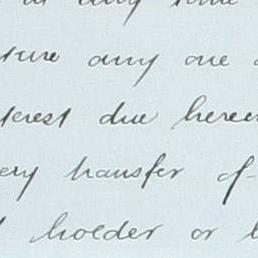 at any time
ture any one
terest due hereu
ery transfer of
holder or